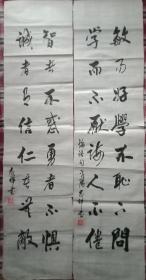 敏而好學不恥下問
學而不厭誨人不倦
論語句
智者不惑勇者不惧
誠者有信仁者無敵